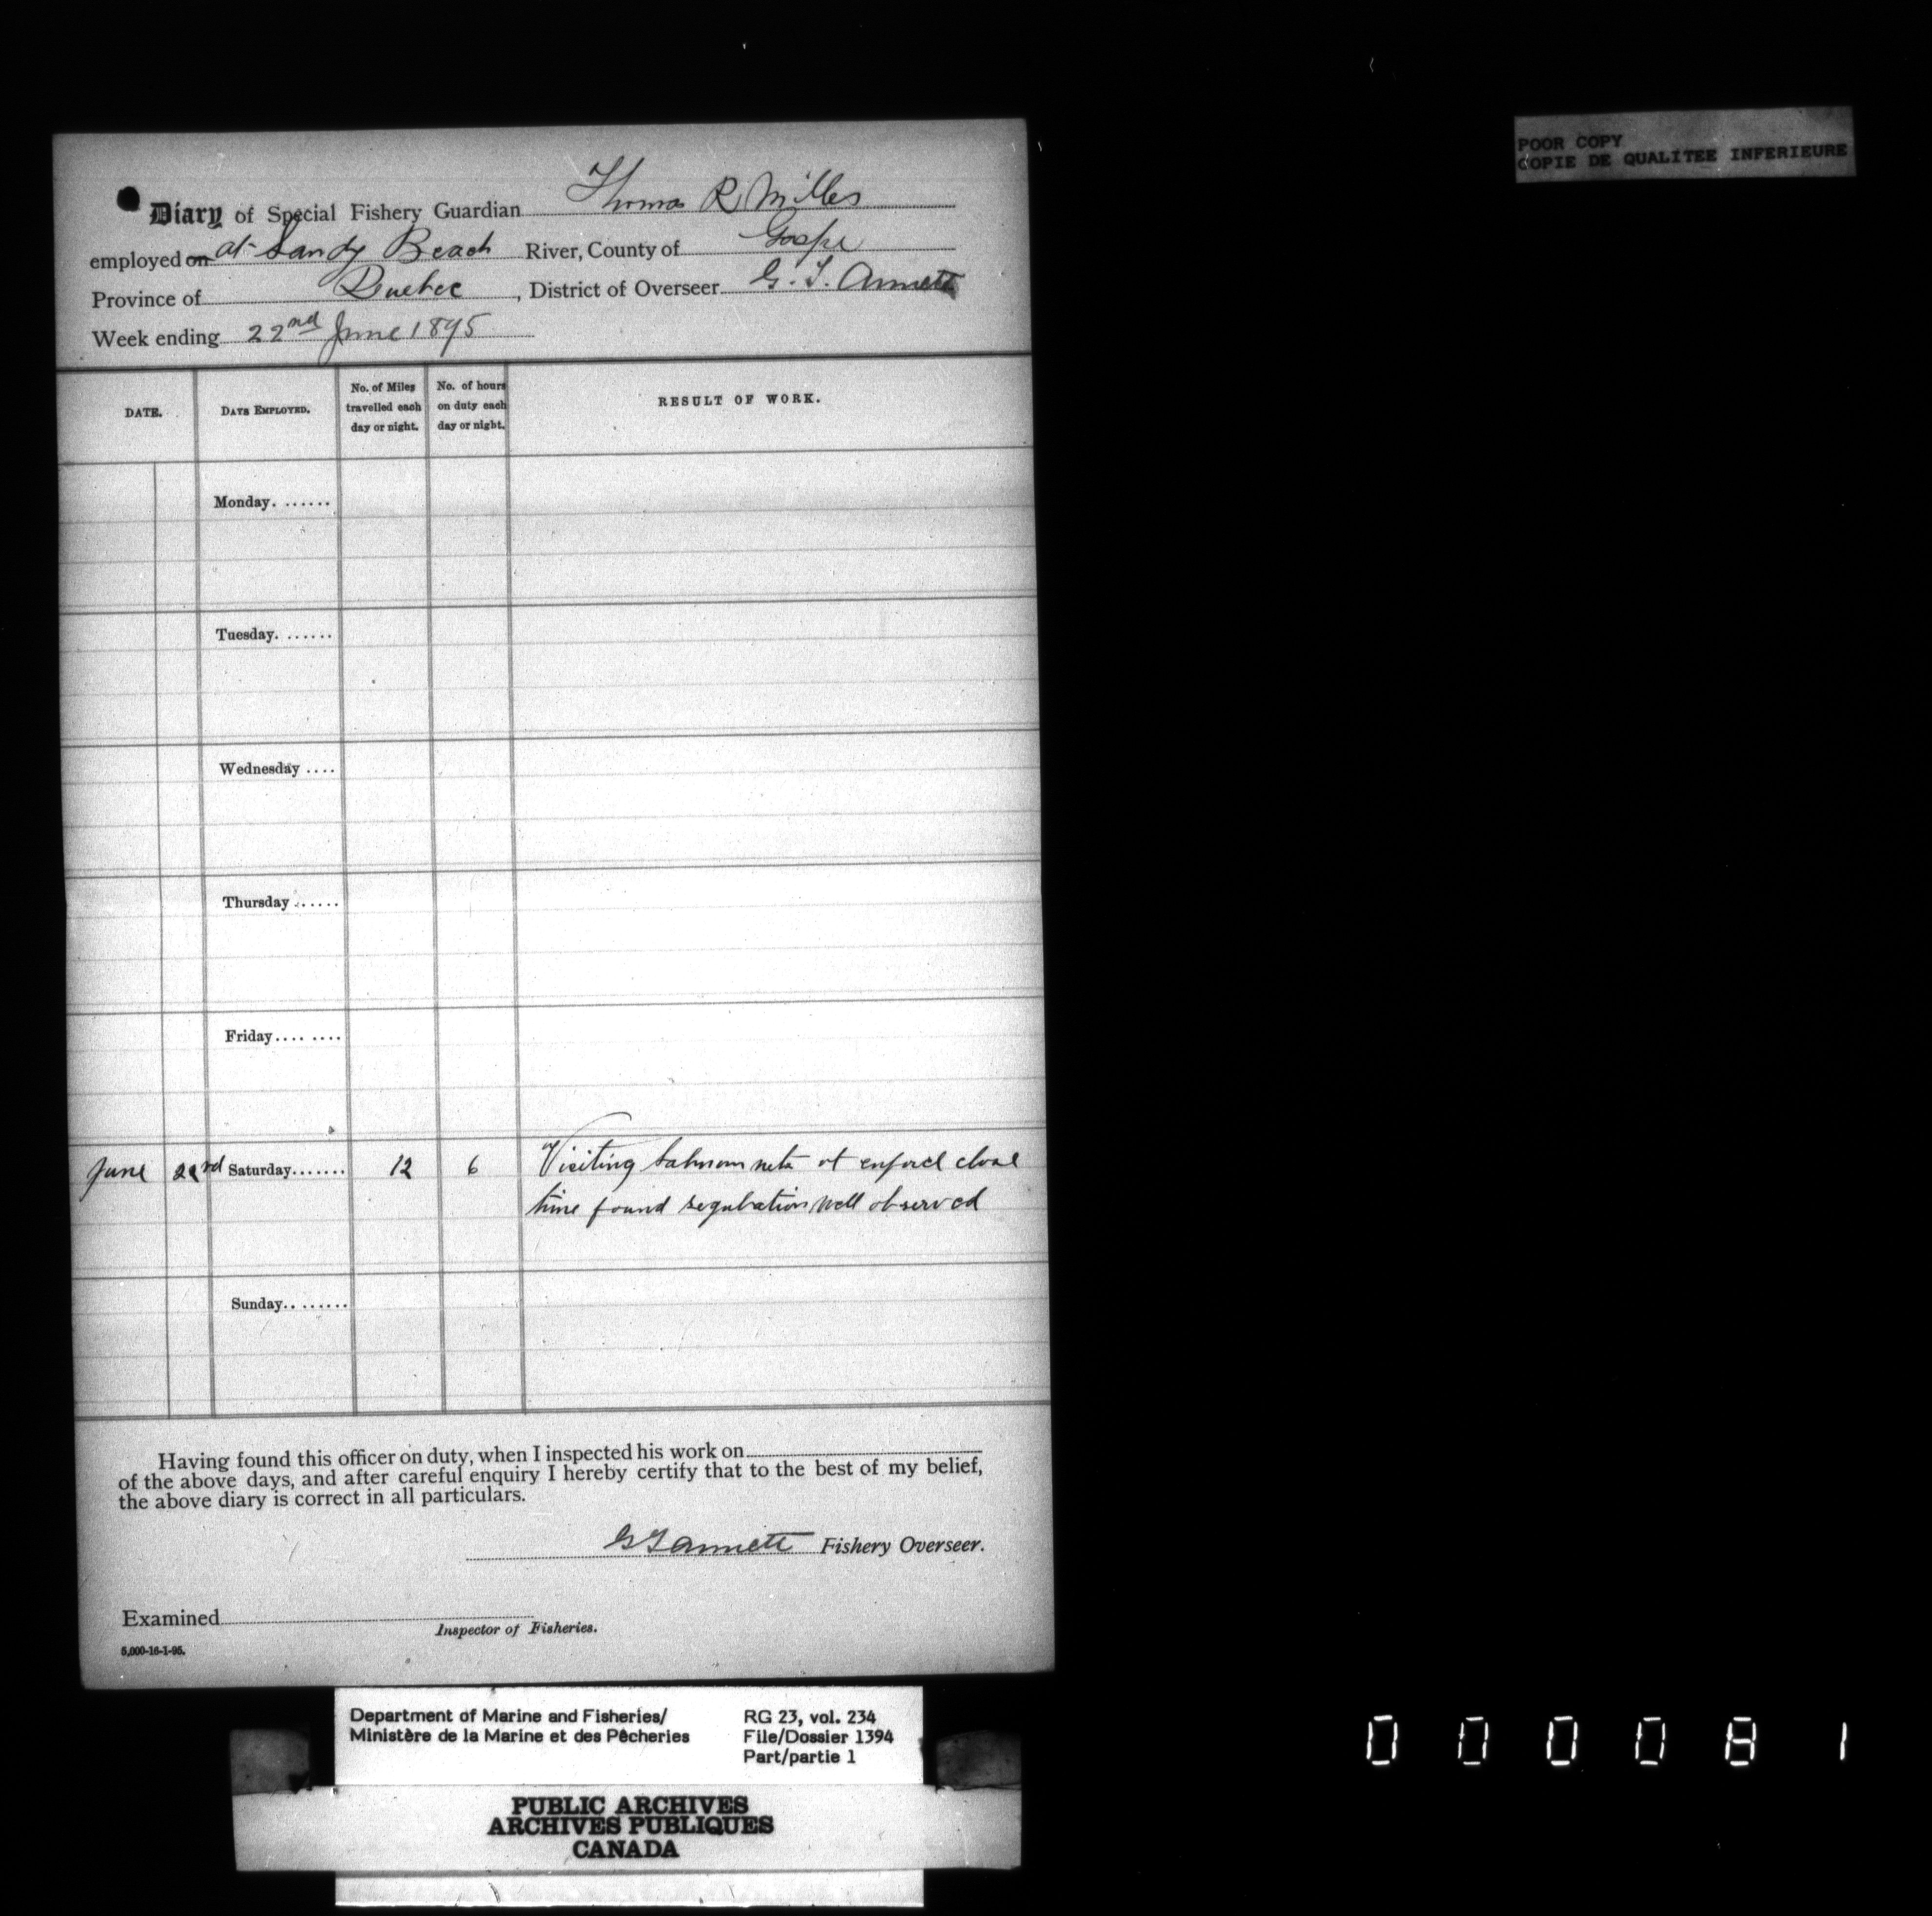 POOR COPY
COPIE DE QUALITEE INFERIEURE
Diary of Special Fishery Guardian Thomas R Milles
employed on at Sandy Beach River, County of Gaspe
Province of Quebec, District of Overseer G. T. Annett
Week ending 22nd June 1895
DATE. DAYS EMPLOYED. No. of Miles travelled each day or night. No. of hours on duty each day or night. RESULT OF WORK.
Monday.......
Tuesday.......
Wednesday ....
Thursday ......
Friday.... ....
June 22nd Saturday....... 12 6 Visiting Salmon nets at enford close
time found regulation well observed
Sunday.. .......
Having found this officer on duty, when I inspected his work on
of the above days, and after careful enquiry I hereby certify that to the best of my belief,
the above diary is correct in all particulars.
G T Annett Fishery Overseer.
Examined
Inspector of Fisheries.
5,000-16-1-95.
Department of Marine and Fisheries/ RG 23, vol. 234
Ministère de la Marine et des Pêcheries File/Dossier 1394
Part/partie 1
PUBLIC ARCHIVES
ARCHIVES PUBLIQUES
CANADA
000081